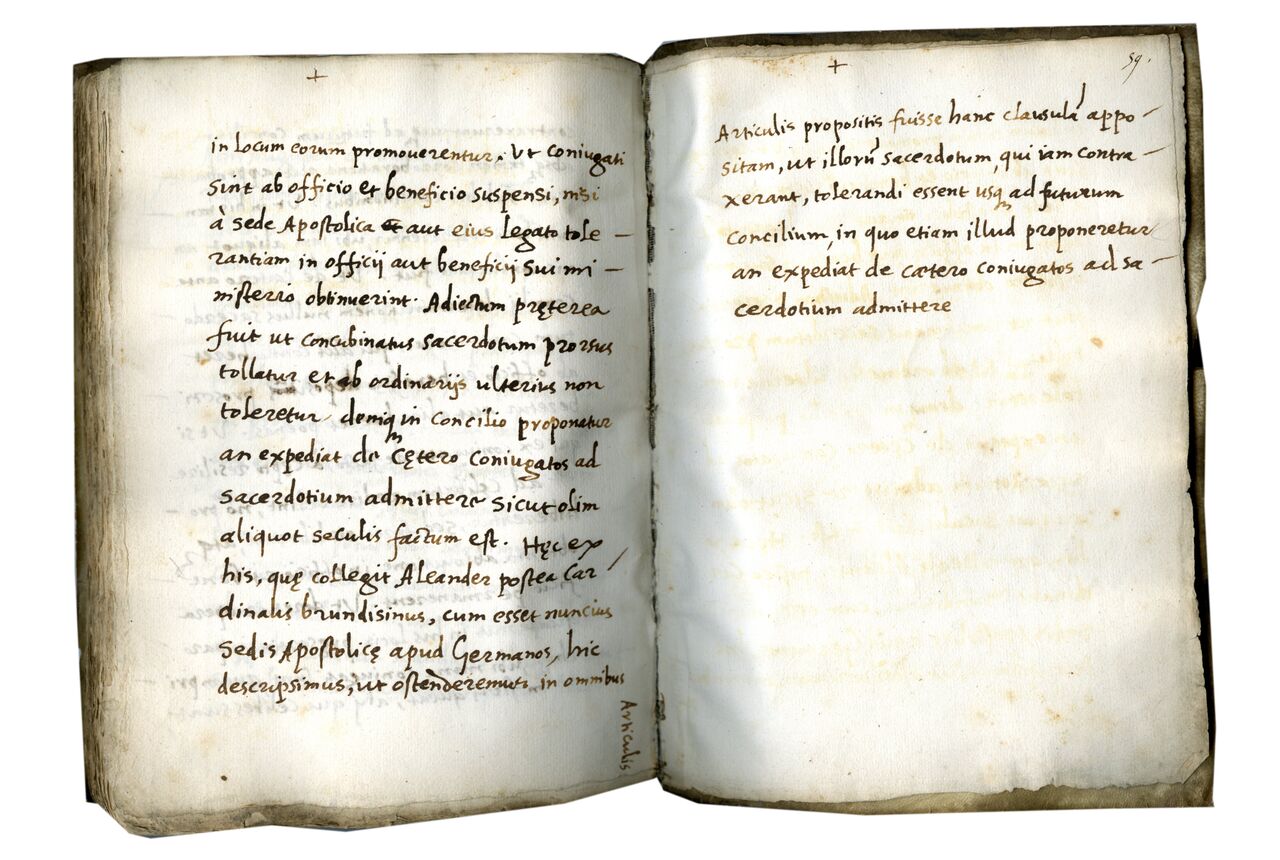 +
in locum eorum promouerentur. Ut coniugati
sint ab officio et beneficio suspensi, nisi
à sede Apostolica et aut eius legato tole –
rantiam in officij aut beneficij sui mi –
nisterio obtinuerint. Adiectum pręterea
fuit ut concubinatus sacerdotum prorsus
tollatur et ab ordinarijs ulterius non
toleretur denique in Concilio proponatur
an expediat de cętero coniugatos ad
sacerdotium admittere sicut olim
aliquot seculis factum est. Hęc ex
his, quę collegit Aleander postea Car
dinalis brundisinus, cum esset nuncius
sedis Apostolicę apud Germanos, hic
descripsimus, ut in omnibus
Articulis
+
59.
Articulis propositis fuisse hanc clausulā appo –
sitam, ut illorū sacerdotum, qui iam contra –
xerant, tolerandi essent usq ad futurum
Concilium, in quo etiam illud proponeretur
an expediat de cætero coniugatos ad sa –
cerdotium admittere